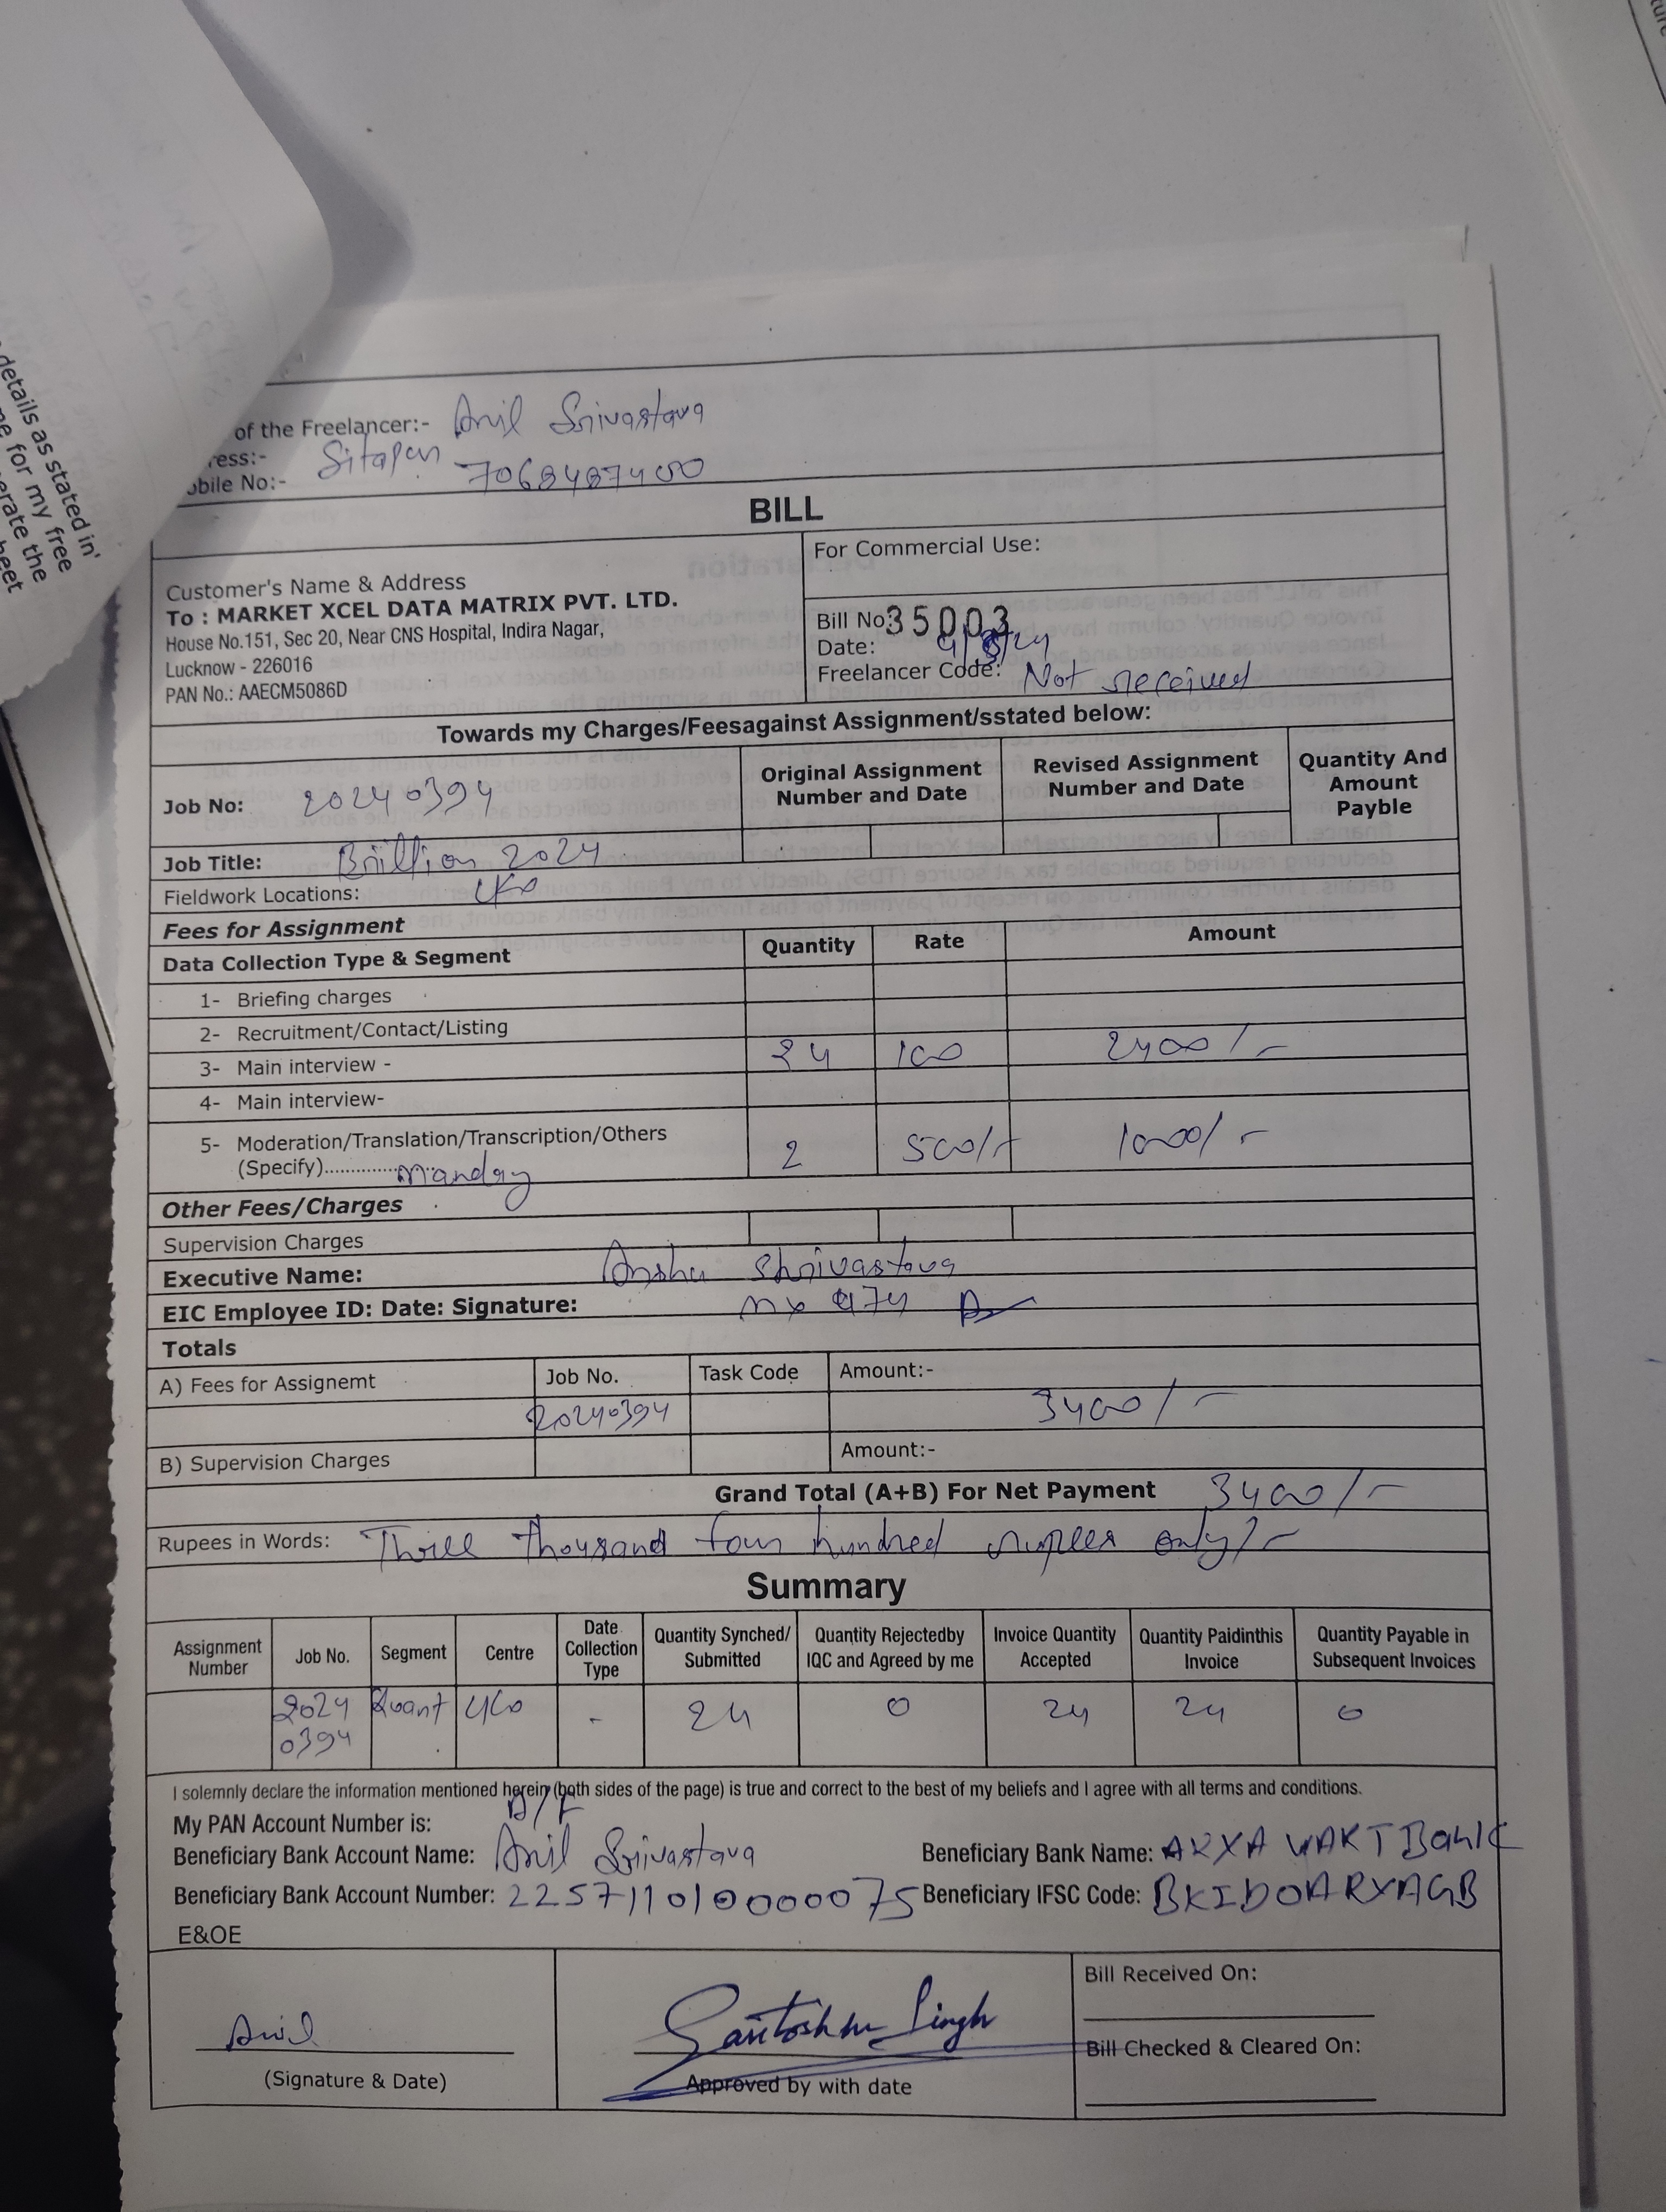 details as stated in'
e for my free
erate the
heet
of the Freelancer:- Anil Srivastava
ress:- Sitapur
obile No:-
BILL
Customer's Name & Address
To : MARKET XCEL DATA MATRIX PVT. LTD.
House No.151, Sec 20, Near CNS Hospital, Indira Nagar,
Lucknow - 226016
PAN No.: AAECM5086D
For Commercial Use:
Bill No 35003
Date: 9/8/24
Freelancer Code: Not received
Towards my Charges/Feesagainst Assignment/sstated below:
Job No: 20240394
Original Assignment Number and Date
Revised Assignment Number and Date
Quantity And Amount Payble
Job Title: Brillion 2024
Fieldwork Locations: LKO
Fees for Assignment
Data Collection Type & Segment Quantity Rate Amount
1- Briefing charges
2- Recruitment/Contact/Listing
3- Main interview - 24 100 2400/-
4- Main interview-
5- Moderation/Translation/Transcription/Others
(Specify).............. Manday 2 500/- 1000/-
Other Fees/Charges
Supervision Charges
Executive Name: Anshu Shrivastava
EIC Employee ID: Date: Signature:
Totals
A) Fees for Assignemt Job No. Task Code Amount:-
20240394 3400/-
B) Supervision Charges Amount:-
Grand Total (A+B) For Net Payment 3400/-
Rupees in Words: Three thousand four hundred rupees only/-
Summary
Assignment Number Job No. Segment Centre Date Collection Type Quantity Synched/ Submitted Quantity Rejectedby IQC and Agreed by me Invoice Quantity Accepted Quantity Paidinthis Invoice Quantity Payable in Subsequent Invoices
2024 0394 Quant LKO - 24 0 24 24 0
I solemnly declare the information mentioned herein (both sides of the page) is true and correct to the best of my beliefs and I agree with all terms and conditions.
My PAN Account Number is: A/F
Beneficiary Bank Account Name: Anil Srivastava Beneficiary Bank Name: ARYA VART Bank
Beneficiary Bank Account Number: 225711010000075 Beneficiary IFSC Code: BKID0ARYAGB
E&OE
Anil
(Signature & Date)
Santosh Singh
Approved by with date
Bill Received On:
Bill Checked & Cleared On: